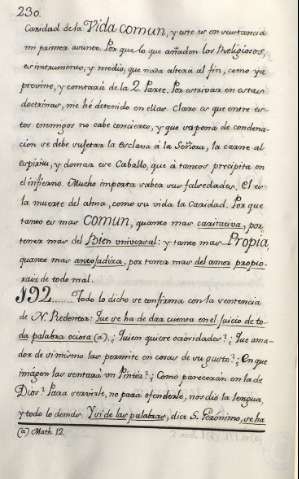 230.
Caridad de la Vida COMUN, y este es en sustancia
mi primer asunto. Por que lo que añaden los Religiosos,
es instrumento, y medio, que nada altera al fin, como ya
previne, y contraria de la 2. Parte. Por estribar en estas
doctrinas, me hé detenido en ellas. Claro es que entre es-
tos enemigos no cabe concierto, y que va pena de condena-
cion se debe sujetar la esclava á la Señora, la carne al
espiritu, y domar ese Caballo, que á tantos precipita en
el infierno. Mucho importa saber sus falsedades. El es
la muerte del alma, como su vida la Caridad. Por que
tanto es mas COMUN, quanto mas caritativa, por
tener mas del Bien universal: y tanto mas Propia
quanto mas antojadiza, por tener mas del amor propio
raiz de todo mal.
192..... Todo lo dicho se confirma con la sentencia
de N. Redentor: Que se ha de dar cuenta en el juicio de to-
da palabra ociosa (a). ¿Quien quiere ociosidades? ¿Que ama-
dor de si mismo las permite en cosas de su gusto? ¿En que
imagen las sentará un Pintor? ¿Como parecerán en la de
Dios? Para servirle, no para ofenderle, nos dio la lengua,
y todo lo demás. Y si de las palabras, dice S. Gerónimo, se ha
(a) Math. 12.